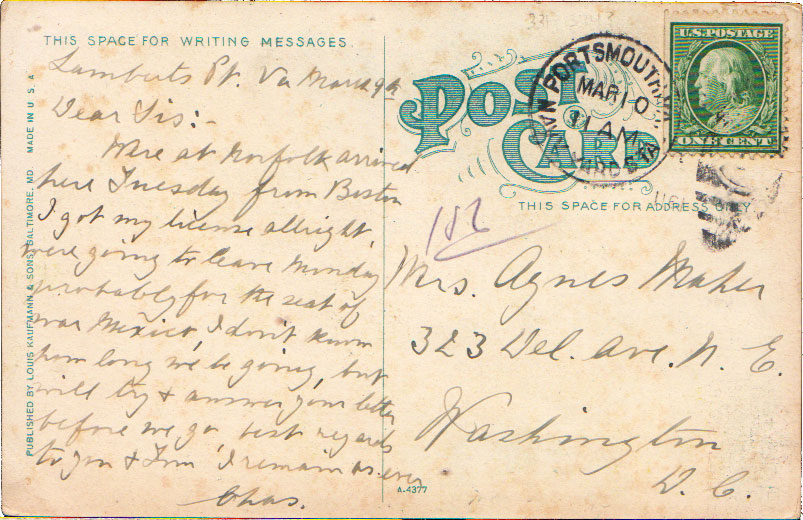 THIS SPACE FOR WRITING MESSAGES
Lamberts Pt. Va March 9th
Dear Sis:-
Were at Norfolk arrived
here Tuesday from Boston
I got my license allright,
were going to leave Monday
probably for the seat of
war Mexico, I don't know
how long we'll be going, but
will try & answer your letter
before we go best regards
to you & I remain as ever
Chas.
PUBLISHED BY LOUIS KAUFMANN & SONS, BALTIMORE, MD. MADE IN U.S.A.
POST CARD
PORTSMOUTH
MAR 10
11 AM
U.S. POSTAGE
ONE CENT
THIS SPACE FOR ADDRESS ONLY
Mrs. Agnes Maher
323 Del. Ave. N. E.
Washington
D. C.
A-4377